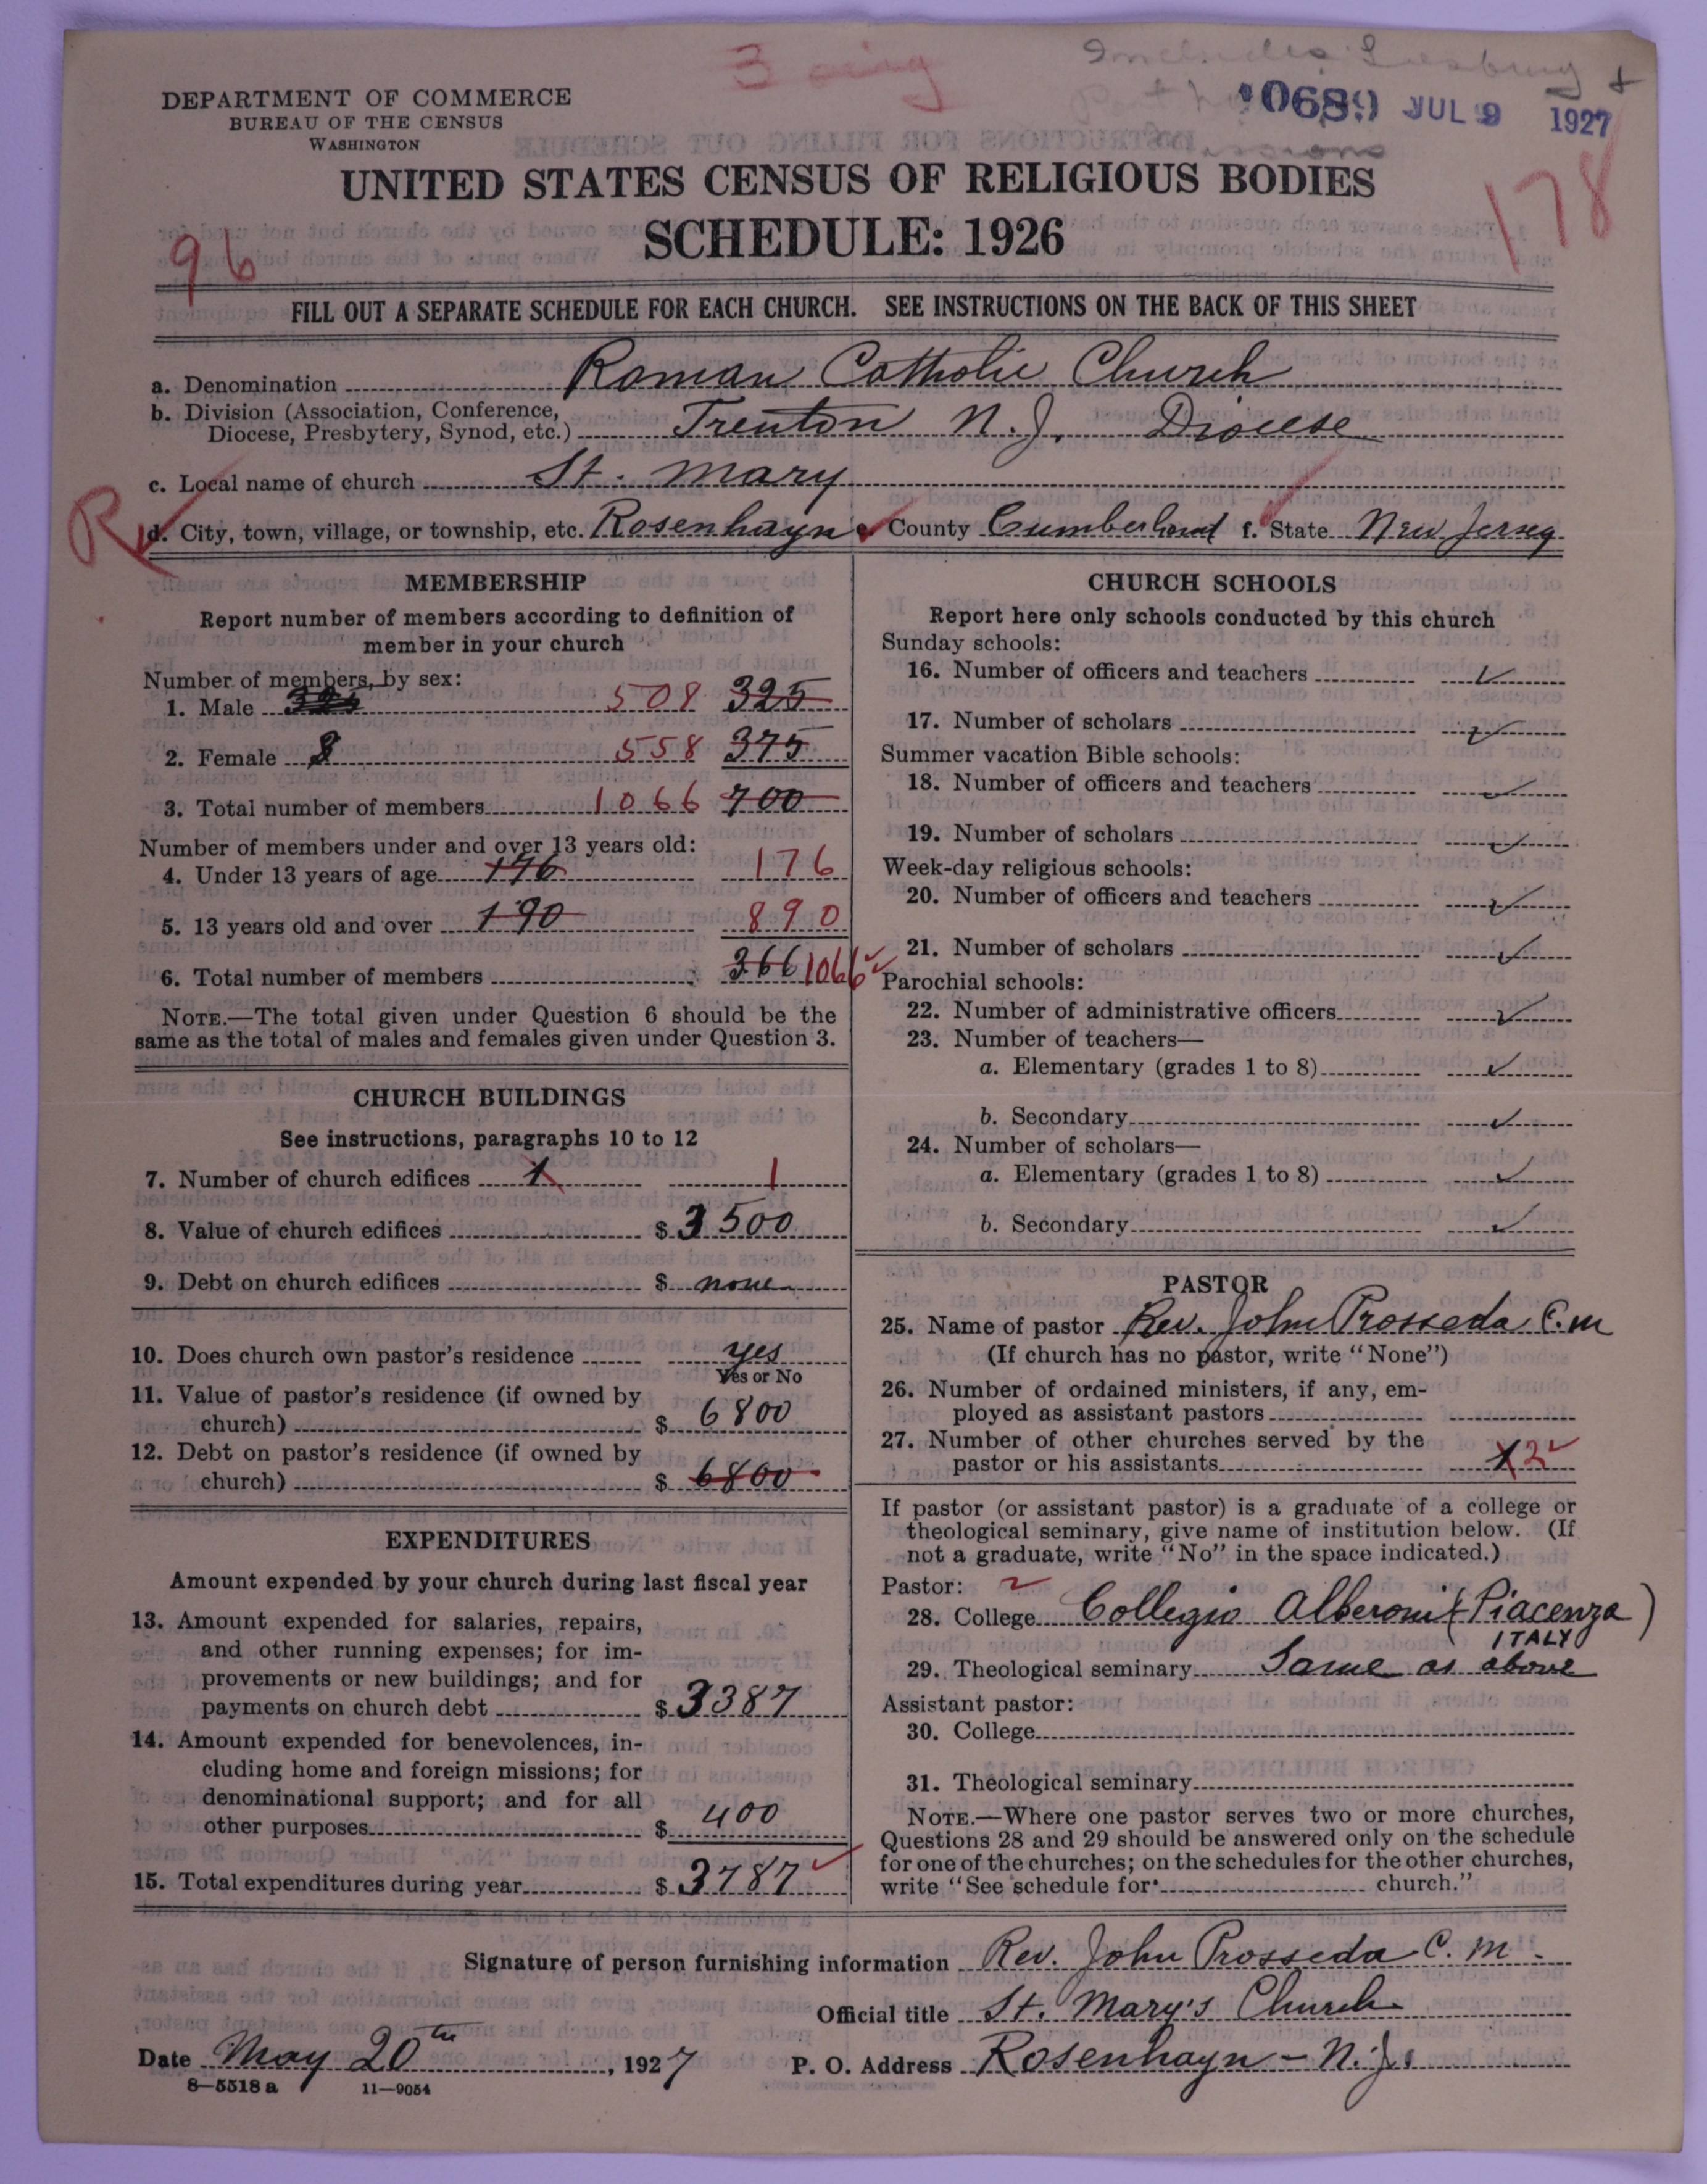 3 owing
Includes Leesburg +
Port
DEPARTMENT OF COMMERCE
BUREAU OF THE CENSUS
WASHINGTON
0689 JUL 9 1927
missions
UNITED STATES CENSUS OF RELIGIOUS BODIES
SCHEDULE: 1926
178
96
FILL OUT A SEPARATE SCHEDULE FOR EACH CHURCH. SEE INSTRUCTIONS ON THE BACK OF THIS SHEET
a. Denomination Roman Catholic Church
b. Division (Association, Conference,
Diocese, Presbytery, Synod, etc.) Trenton N.J. Diocese
c. Local name of church St. Mary
R
d. City, town, village, or township, etc. Rosenhayn e. County Cumberland f. State New Jersey
MEMBERSHIP
Report number of members according to definition of
member in your church
Number of members, by sex:
1. Male 325 508 325
2. Female 8 558 375
3. Total number of members 1066 700
Number of members under and over 13 years old:
4. Under 13 years of age 176 176
5. 13 years old and over 190 890
6. Total number of members 366 1066
NOTE.—The total given under Question 6 should be the
same as the total of males and females given under Question 3.
CHURCH BUILDINGS
See instructions, paragraphs 10 to 12
7. Number of church edifices 1 1
8. Value of church edifices $ 3500
9. Debt on church edifices $ none
10. Does church own pastor's residence yes
Yes or No
11. Value of pastor's residence (if owned by
church) $ 6800
12. Debt on pastor's residence (if owned by
church) $ 6800
EXPENDITURES
Amount expended by your church during last fiscal year
13. Amount expended for salaries, repairs,
and other running expenses; for im-
provements or new buildings; and for
payments on church debt $ 3387
14. Amount expended for benevolences, in-
cluding home and foreign missions; for
denominational support; and for all
other purposes $ 400
15. Total expenditures during year $ 3787
CHURCH SCHOOLS
Report here only schools conducted by this church
Sunday schools:
16. Number of officers and teachers
17. Number of scholars
Summer vacation Bible schools:
18. Number of officers and teachers
19. Number of scholars
Week-day religious schools:
20. Number of officers and teachers
21. Number of scholars
Parochial schools:
22. Number of administrative officers
23. Number of teachers—
a. Elementary (grades 1 to 8)
b. Secondary
24. Number of scholars—
a. Elementary (grades 1 to 8)
b. Secondary
PASTOR
25. Name of pastor Rev. John Prosseda C.M
(If church has no pastor, write "None")
26. Number of ordained ministers, if any, em-
ployed as assistant pastors
27. Number of other churches served by the
pastor or his assistants 1 2
If pastor (or assistant pastor) is a graduate of a college or
theological seminary, give name of institution below. (If
not a graduate, write "No" in the space indicated.)
Pastor:
28. College Collegio Alberoni (Piacenza)
ITALY
29. Theological seminary Same as above
Assistant pastor:
30. College
31. Theological seminary
NOTE.—Where one pastor serves two or more churches,
Questions 28 and 29 should be answered only on the schedule
for one of the churches; on the schedules for the other churches,
write "See schedule for church."
Signature of person furnishing information Rev. John Prosseda C.M.
Official title St. Mary's Church
Date May 20th, 1927 P. O. Address Rosenhayn - N.J.
8—5518 a 11—9054